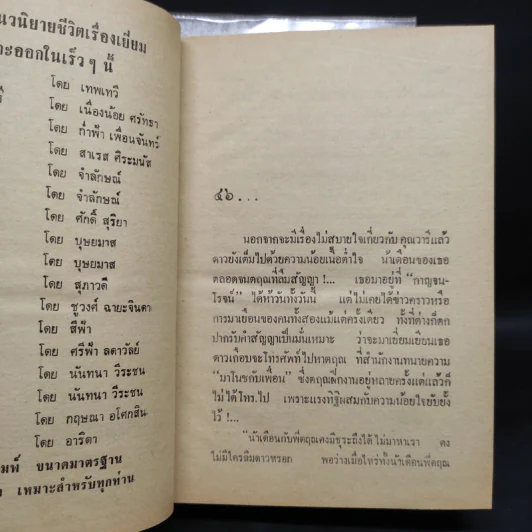 นวนิยายชีวิตเรื่องเยี่ยม
จะออกในเร็ว ๆ นี้
โดย เทพเทวี
โดย เนื่องน้อย ศรัทธา
โดย ก่ำฟ้า เพื่อนจันทร์
โดย สาเรส ศิระมนัส
โดย จำลักษณ์
โดย จำลักษณ์
โดย ศักดิ์ สุริยา
โดย บุษยมาส
โดย บุษยมาส
โดย สุภาวดี
โดย ชูวงศ์ ฉายะจินดา
โดย สีฟ้า
โดย ศรีฟ้า ลดาวัลย์
โดย นันทนา วีระชน
โดย นันทนา วีระชน
โดย กฤษณา อโศกสิน
โดย อาริตา
มพ์ ขนาดมาตรฐาน
เหมาะสำหรับทุกท่าน
๕๖...
นอกจากจะมีเรื่องไม่สบายใจเกี่ยวกับคุณวารีแล้ว
ดาวยังเต็มไปด้วยความน้อยเนื้อต่ำใจ น้าเดือนของเธอ
ตลอดจนตฤณที่ลืมสัญญา !... เธอมาอยู่ที่ "กาญจน-
โรจน์" ได้ห้าวันทั้งวันนี้ แต่ไม่เคยได้ข่าวคราวหรือ
การมาเยือนของคนทั้งสองแม้แต่ครั้งเดียว ทั้งที่ต่างก็ตก
ปากรับคำสัญญาเป็นมั่นเหมาะ ว่าจะมาเยี่ยมเยียนเธอ
ดาวเกือบจะโทรศัพท์ไปหาตฤณ ที่สำนักงานทนายความ
"มาโนชกับเพื่อน" ซึ่งตฤณฝึกงานอยู่หลายครั้งแต่แล้วก็
ไม่ได้โทร.ไป เพราะแรงทิฐิผสมกับความน้อยใจยับยั้ง
ไว้ !...
"น้าเดือนกับพี่ตฤณคงมีธุระถึงได้ไม่มาหาเรา คง
ไม่มีใครลืมดาวหรอก พอว่างเมื่อไหร่ทั้งน้าเดือนพี่ตฤณ